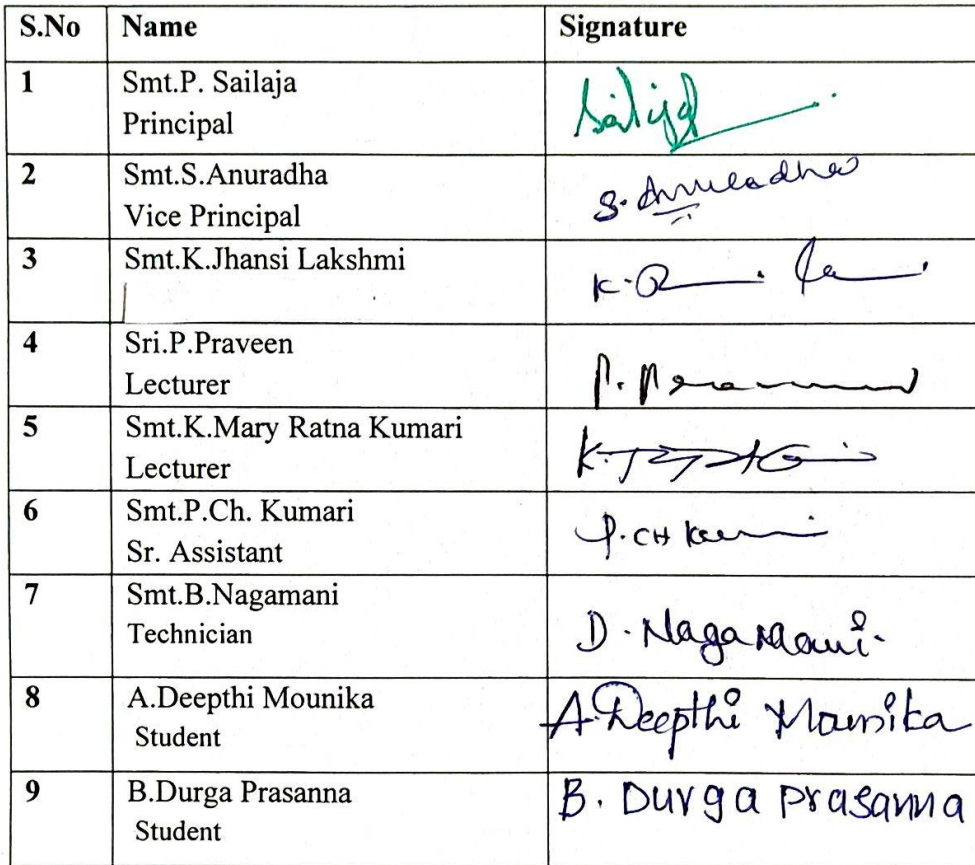 S.No Name Signature
1 Smt.P. Sailaja
Principal
Sailaja
2 Smt.S.Anuradha
Vice Principal
S. Anuradha
3 Smt.K.Jhansi Lakshmi
K.
4 Sri.P.Praveen
Lecturer
P.
5 Smt.K.Mary Ratna Kumari
Lecturer
K.
6 Smt.P.Ch. Kumari
Sr. Assistant
P. CH
7 Smt.B.Nagamani
Technician
D. NagaMani.
8 A.Deepthi Mounika
Student
A.Deepthi Mounika
9 B.Durga Prasanna
Student
B. Durga Prasanna